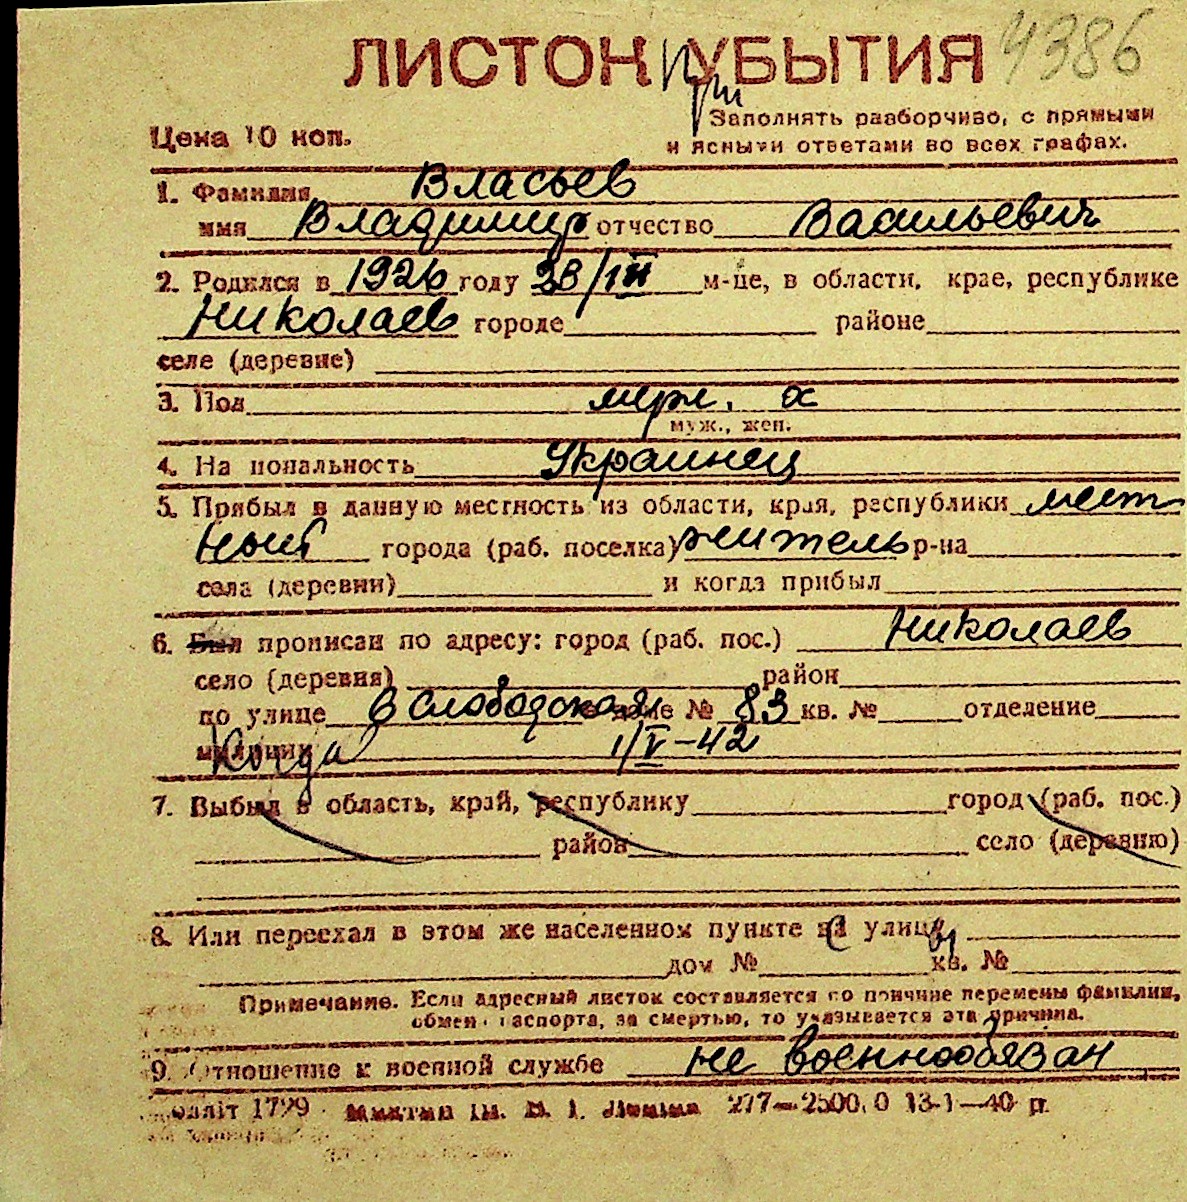 ЛИСТОК УБЫТИЯ 4386
При
Цена 10 коп.
Заполнять разборчиво, с прямыми
и ясными ответами во всех графах.
1. Фамилия Власьев
имя Владимир отчество Васильевич
2. Родился в 1926 году 28/III м-це, в области, крае, республике
Николаев городе районе
селе (деревне)
3. Пол муж.
муж., жен.
4. Национальность Украинец
5. Прибыл в данную местность из области, края, республики мест
ный города (раб. поселка) житель р-на
села (деревни) и когда прибыл
6. Был прописан по адресу: город (раб. пос.) Николаев
село (деревня) район
по улице В Слободская в доме № 83 кв. № отделение
милиции Когда 1/V-42
7. Выбыл в область, край, республику город (раб. пос.)
район село (деревню)
8. Или переехал в этом же населенном пункте на улицу С ы
дом № кв. №
Примечание. Если адресный листок составляется по причине перемены фамилии,
обмена паспорта, за смертью, то указывается эта причина.
9. Отношение к военной службе не военнообязан
1799 277—2500.0 13-1—40 р.